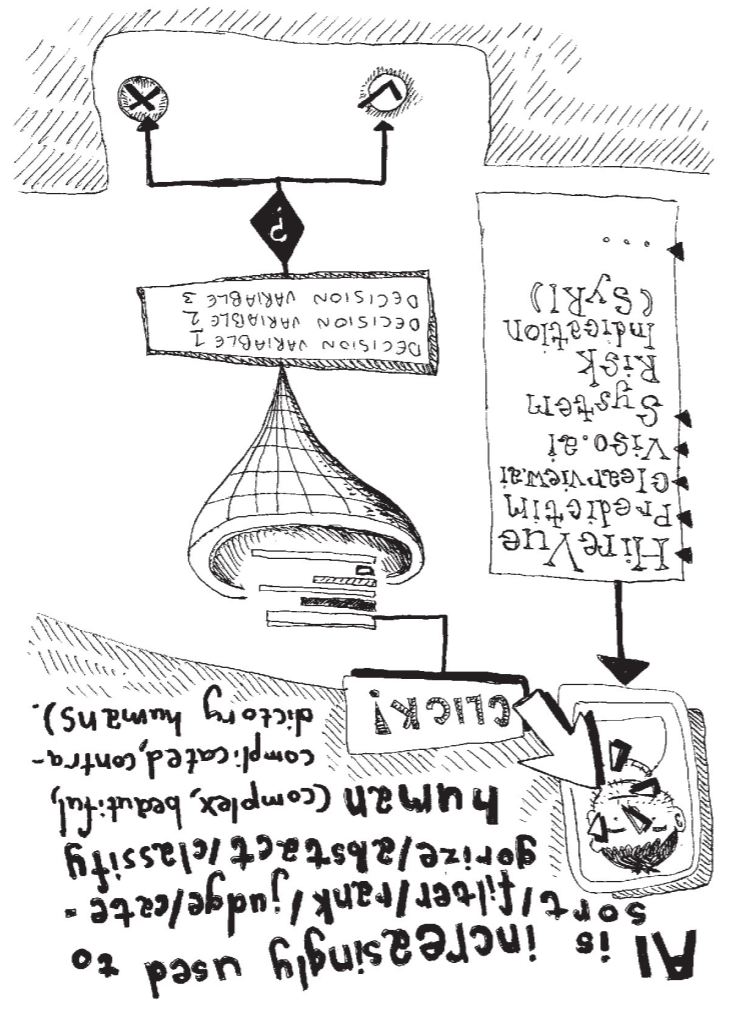 AI is increasingly used to
sort/filter/rank/judge/cate-
gorize/abstract/classify
human (complex, beautiful,
complicated, contra-
dictory humans).
CLICK!
HireVue
Predictim
Clearview.ai
Viso.ai
System
Risk
Indication
(SyRI)
...
DECISION VARIABLE 1
DECISION VARIABLE 2
DECISION VARIABLE 3
?